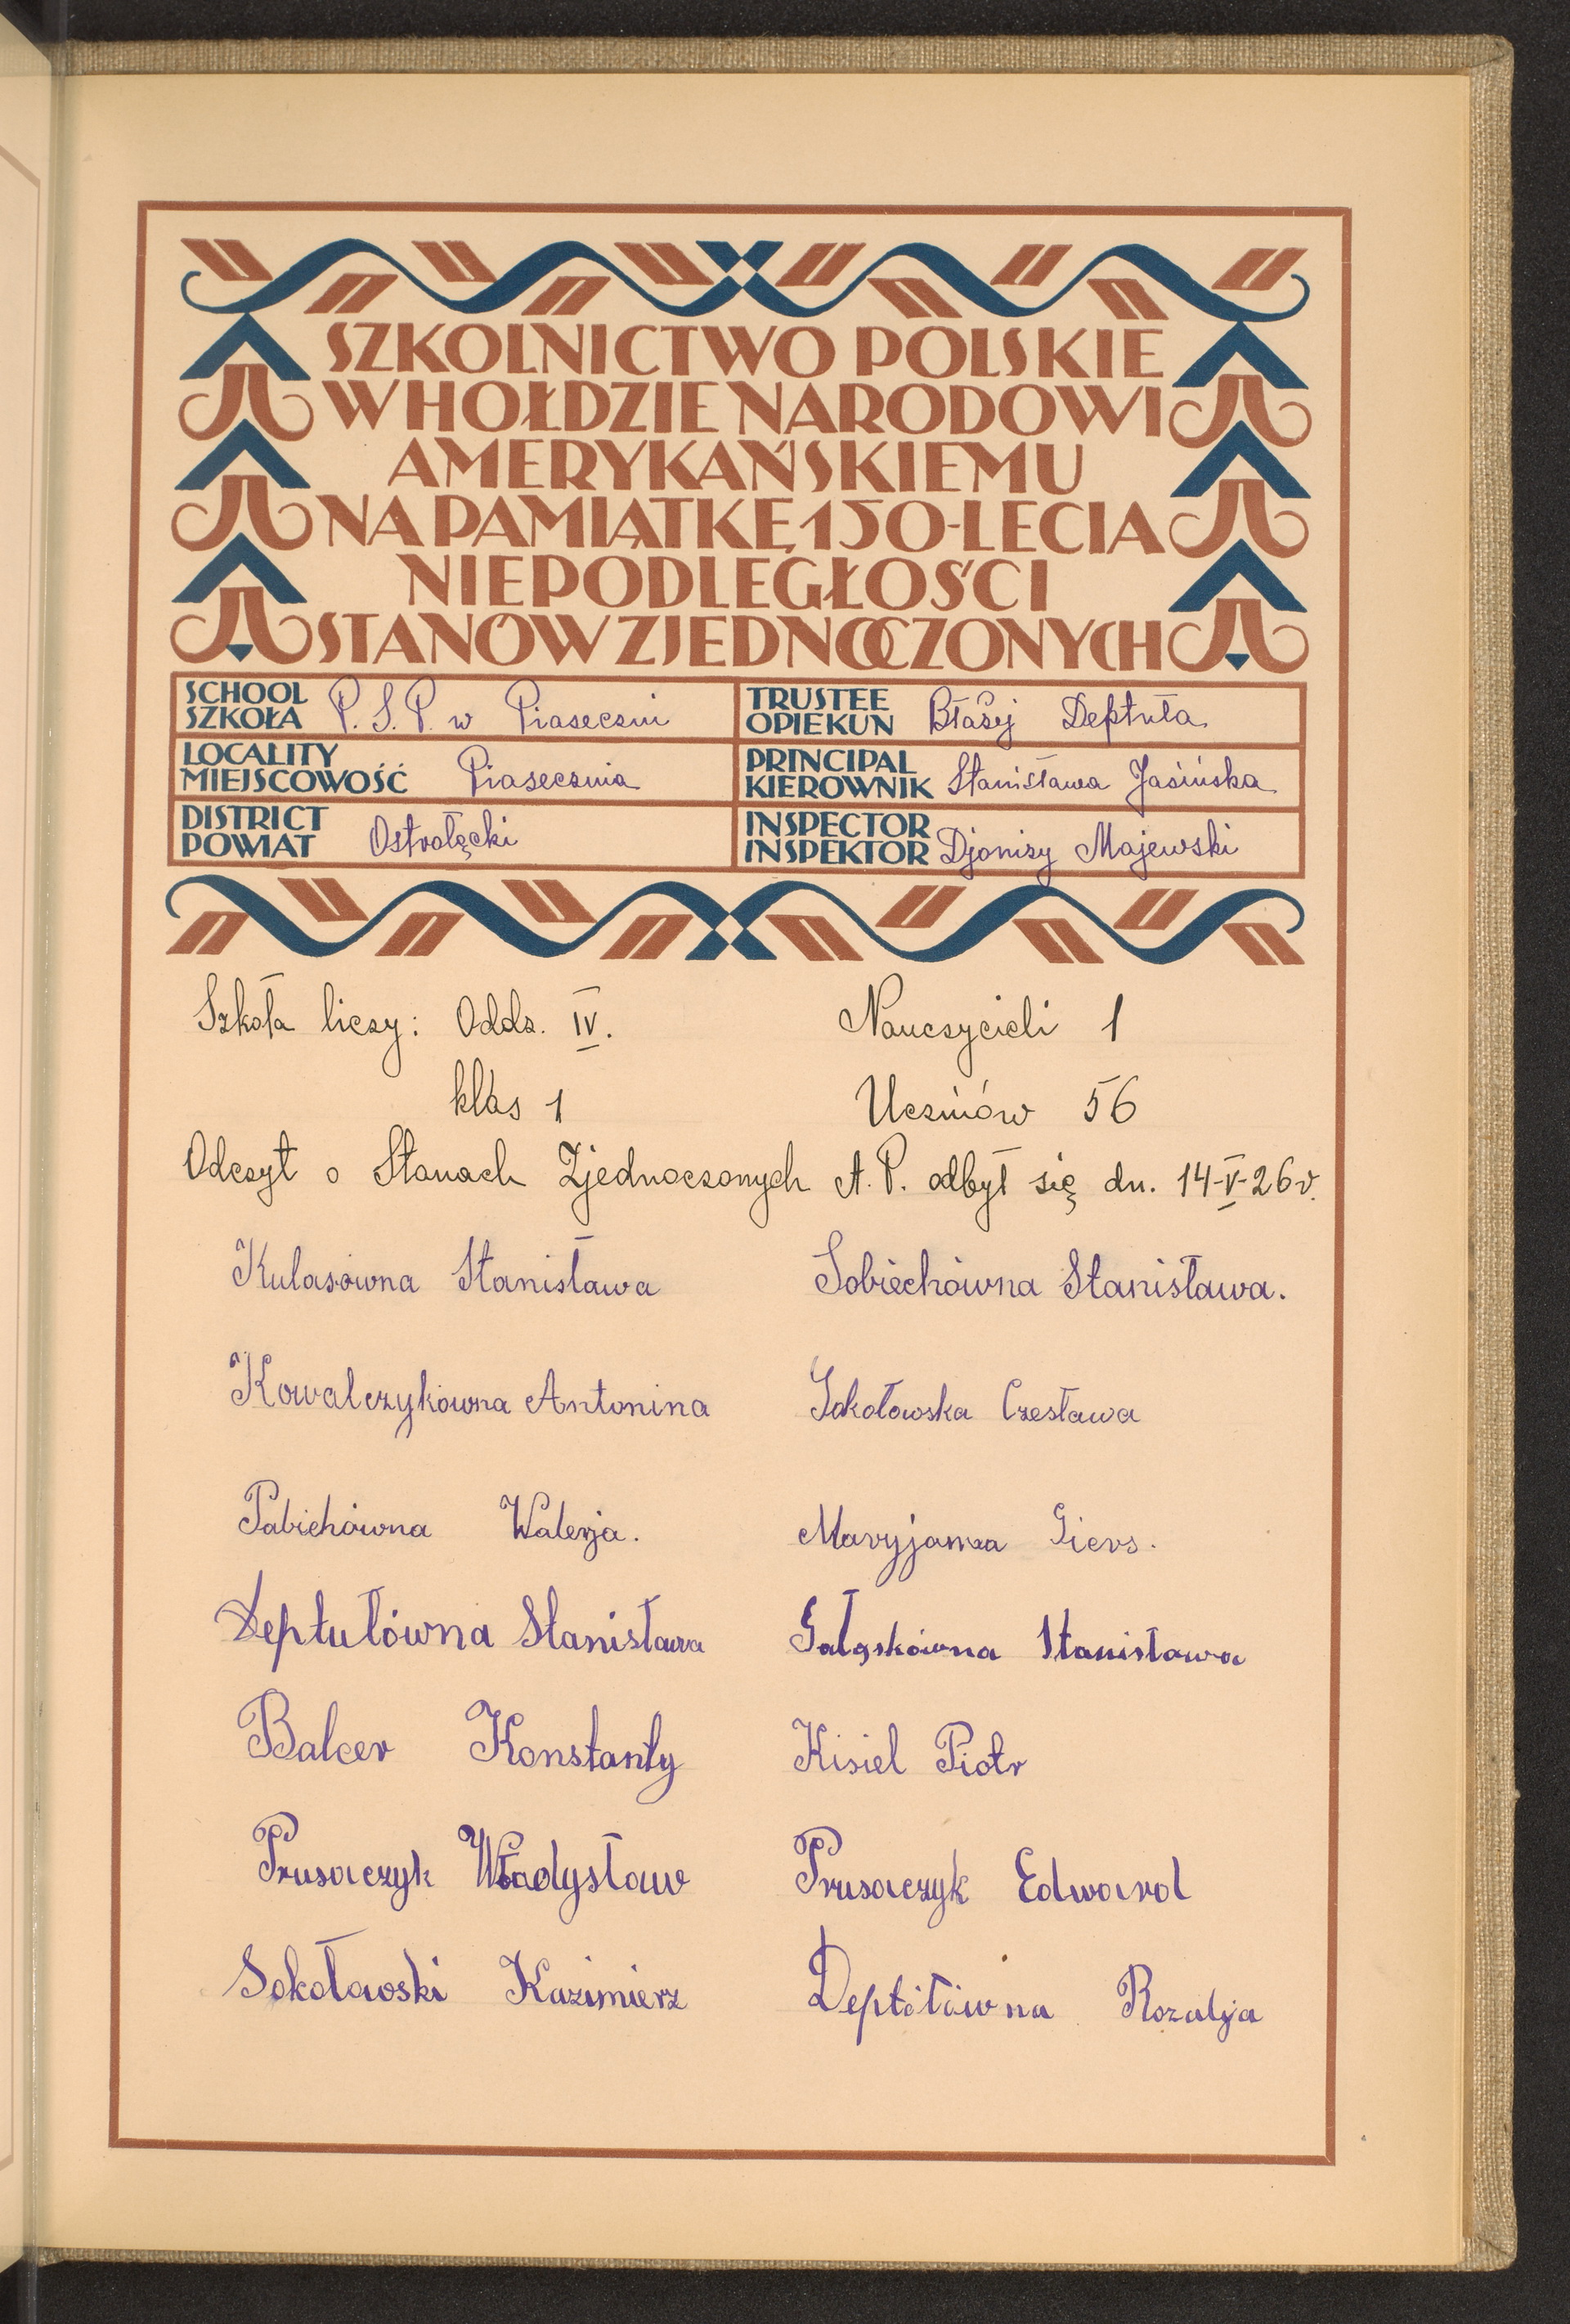 SZKOLNICTWO POLSKIE
W HOŁDZIE NARODOWI
AMERYKAŃSKIEMU
NA PAMIĄTKĘ 150-LECIA
NIEPODLEGŁOŚCI
STANÓW ZJEDNOCZONYCH
SCHOOL
SZKOŁA P. S. P. w Piaseczni
TRUSTEE
OPIEKUN Błażej Deptuła
LOCALITY
MIEJSCOWOŚĆ Piasecznia
PRINCIPAL
KIEROWNIK Stanisława Jasińska
DISTRICT
POWIAT Ostrołęcki
INSPECTOR
INSPEKTOR Djonizy Majewski
Szkoła liczy: Oddz. IV. Nauczycieli 1
klas 1 Uczniów 56
Odczyt o Stanach Zjednoczonych A. P. odbył się dn. 14-V-26 r.
Kulasówna Stanisława Sobiechówna Stanisława.
Kowalczykówna Antonina Sokołowska Czesława
Pabichówna Walerja. Maryjanna Giers.
Deptułówna Stanisława Gałąskówna Stanisława
Balcer Konstanty Kisiel Piotr
Prusaczyk Władysław Prusaczyk Edward
Sokołowski Kazimierz Deptółówna Rozalja